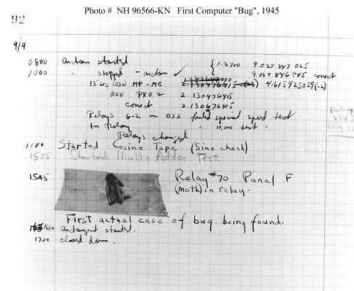 Photo # NH 96566-KN First Computer "Bug", 1945
92
9/9
0800 antan started
1000 " stopped - antan ✓
{ 1.2700 9.037 847 025
9.037 846 995 correct
13"uc (032) MP-MC 4.615925059(-2)
(033) PRO 2 2.130476415
correct 2.130676415
Relays 6-2 in 033 failed special speed test
in relay " 10,000 test.
Relays changed
1100 Started Cosine Tape (Sine check)
1525 Started Multy Adder Test.
1545 Relay #70 Panel F
(moth) in relay.
First actual case of bug being found.
antangent started.
1700 closed down.